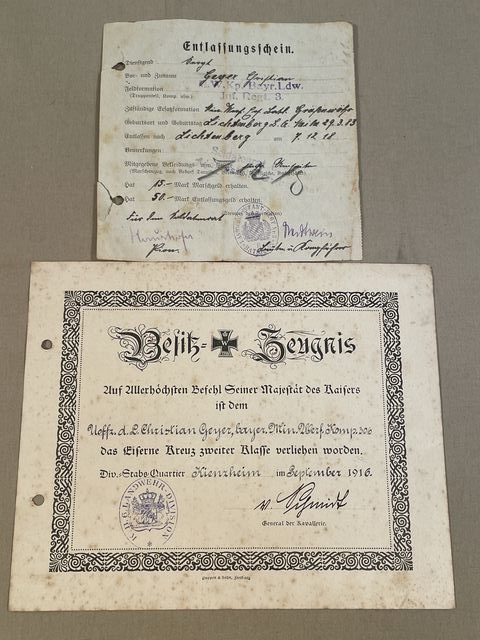 Entlassungsschein.
Dienstgrad Sergt
Vor- und Zuname Geyer Christian
Feldformation M.W.Kp. Bayr. Ldw.
(Truppenteil, Komp. usw.) Inf. Regt. 3.
Zuständige Ersatzformation Grafenwöhr
Geburtsort und Geburtstag Lichtenberg 29.3.83
Entlassen nach Lichtenberg am 7.12.18
Bemerkungen
Mitgegebene Bekleidungs-
Hat 15.- Mark Marschgeld erhalten.
Hat 50.- Mark Entlassungsgeld erhalten.
Für den Soldatenrat
Besitz- W Zeugnis
Auf Allerhöchsten Befehl Seiner Majestät des Kaisers
ist dem
Uoffz. d. L. Christian Geyer, bayer. Min. Werf. Komp. 306
das Eiserne Kreuz zweiter Klasse verliehen worden.
Div.-Stabs-Quartier Kienzheim im September 1916.
K.B. 6. LANDWEHR-DIVISION
v. Schmidt
General der Kavallerie.